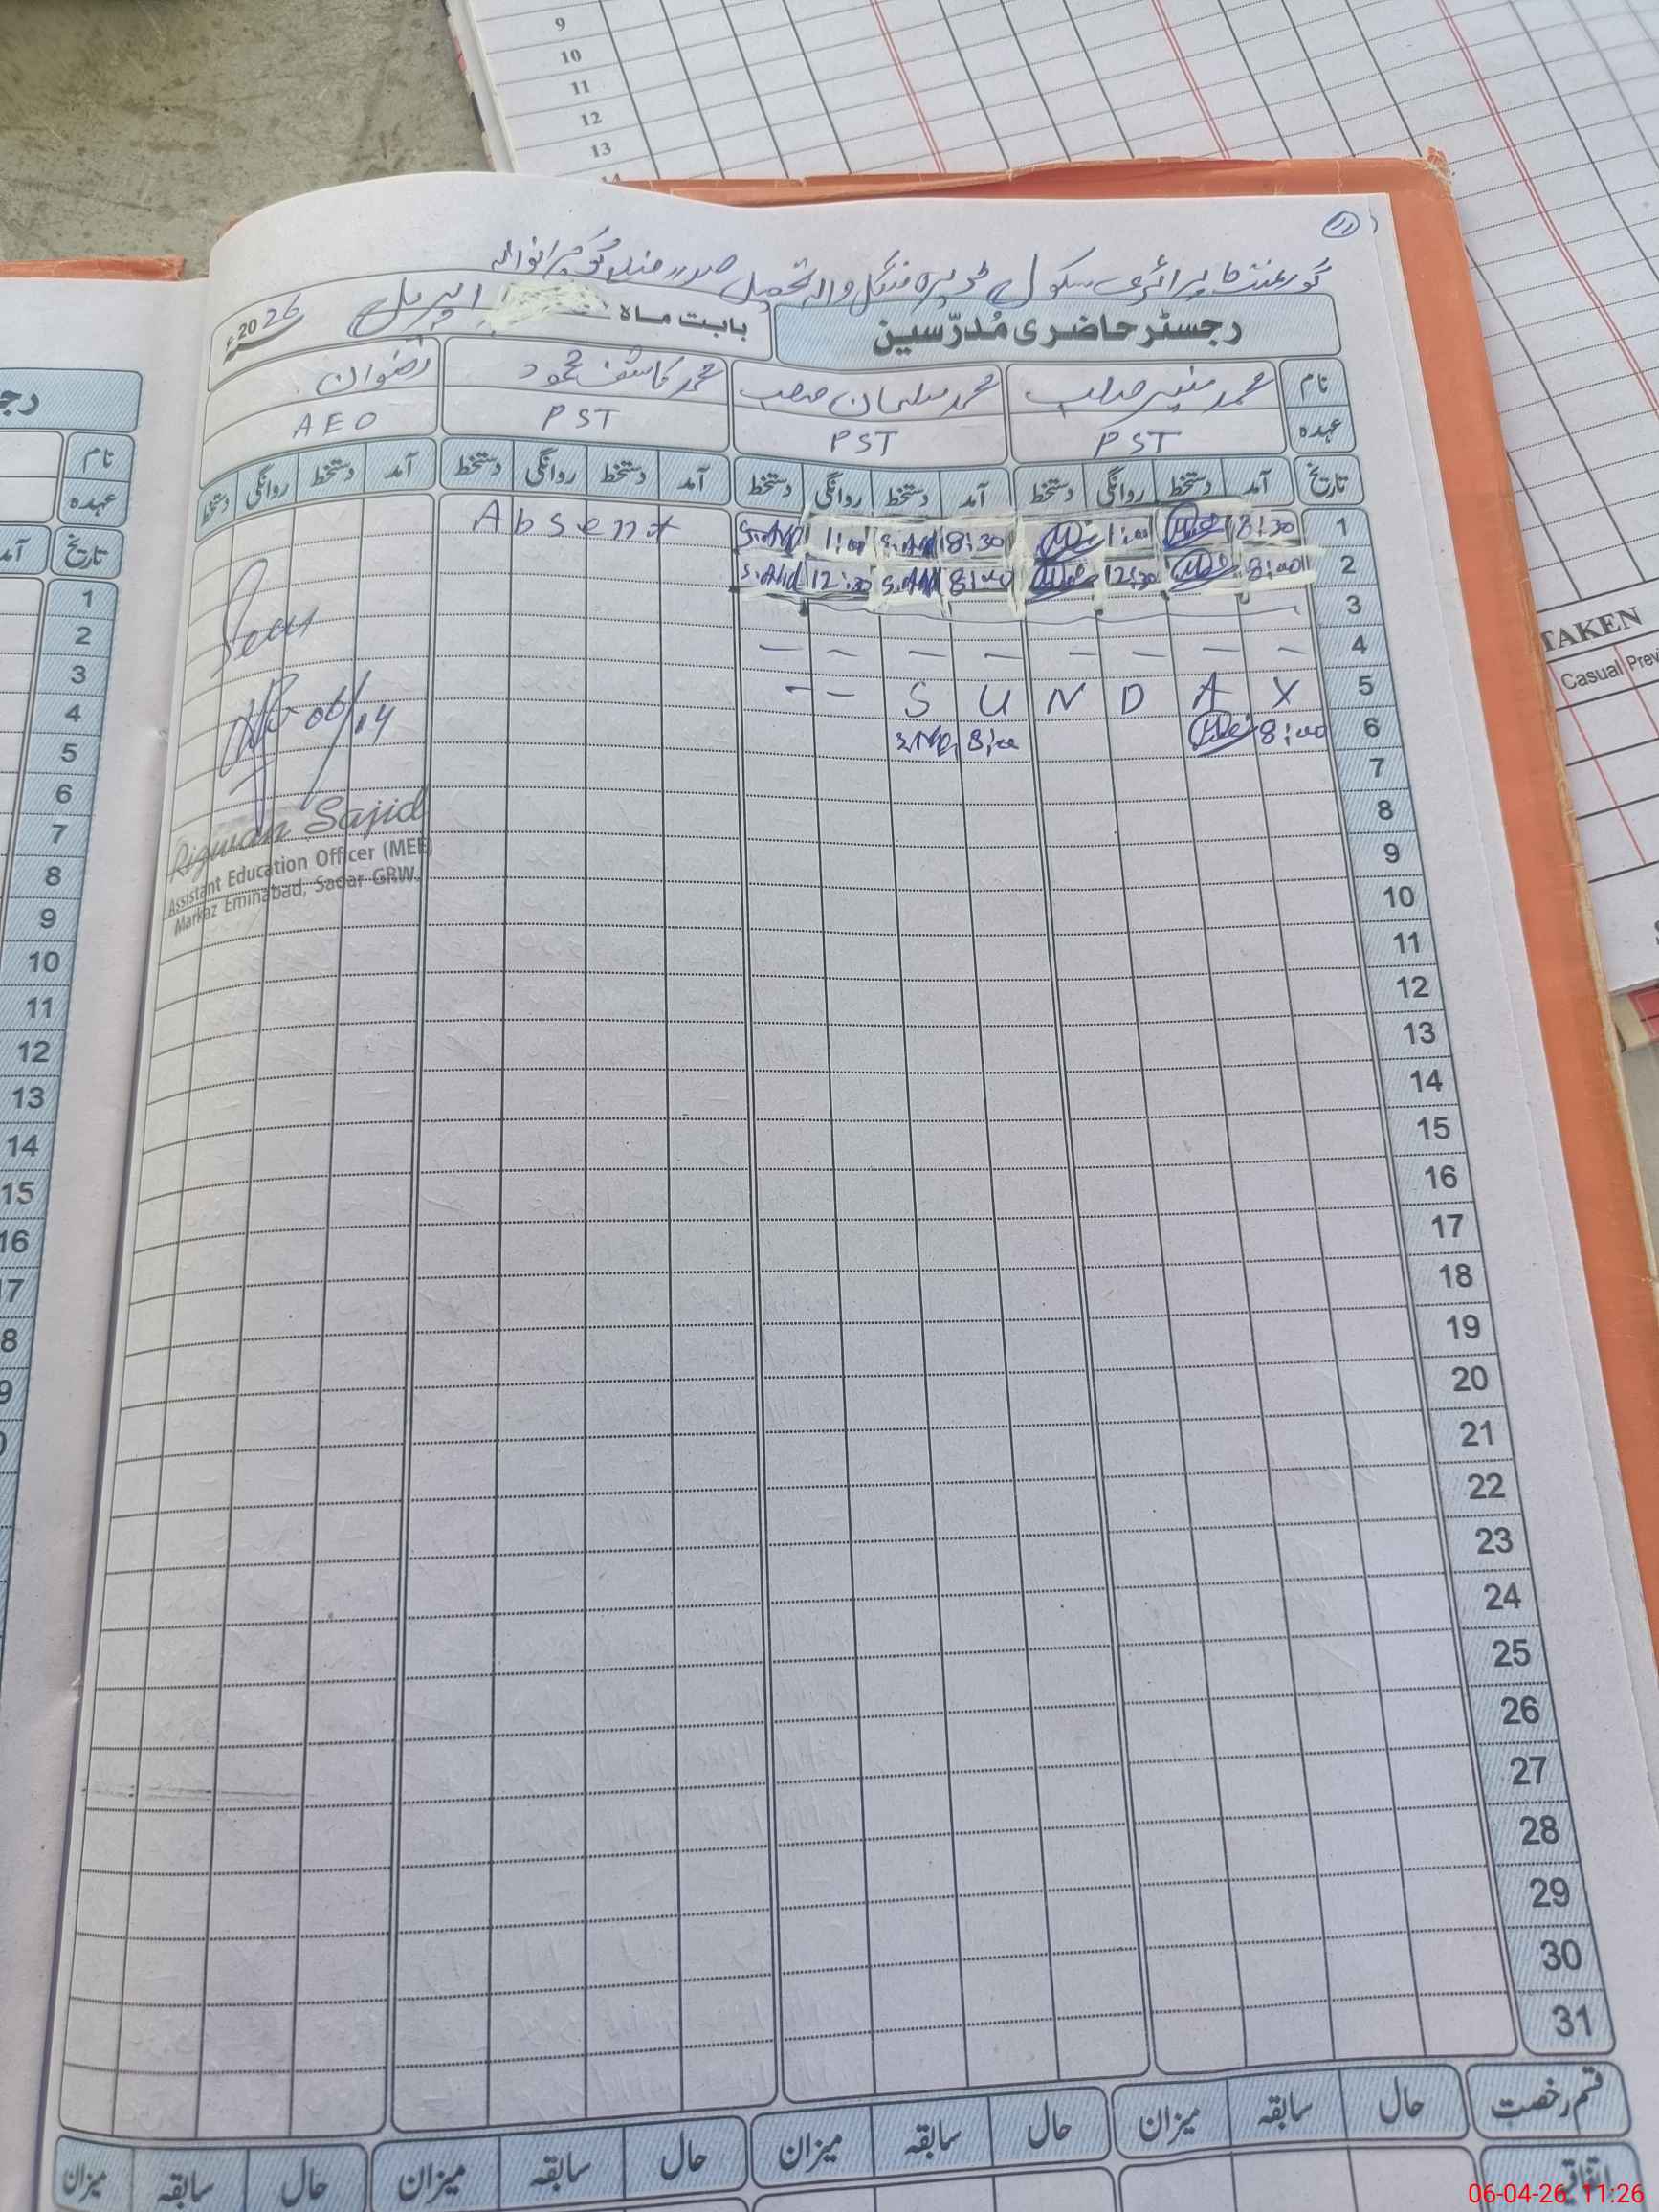 9
10
11
12
13
گورنمنٹ پرائمری سکول ڈیرہ منگل والہ تحصیل صدر ضلع گوجرانوالہ
رجسٹر حاضری مُدرّسین بابت ماہ اپریل 2026ء
نام محمد منیر صاحب محمد سلمان صاحب محمد کاشف محمود رضوان
عہدہ PST PST PST AEO
تاریخ آمد دستخط روانگی دستخط آمد دستخط روانگی دستخط آمد دستخط روانگی دستخط آمد دستخط روانگی دستخط
1 8:30 1:00 8:30 1:00 Absent
2 8:00 12:30 8:00 12:30
3
4 — — — — — — — —
5 — — S U N D A Y
6 8:00 8:00
7
8
9
10
11
12
13
14
15
16
17
18
19
20
21
22
23
24
25
26
27
28
29
30
31
06/04
Rizwan Sajid
Assistant Education Officer (MEE)
Markaz Eminabad, Sadar GRW.
قسم رخصت حال سابقہ میزان حال سابقہ میزان حال سابقہ میزان حال سابقہ میزان
اتفاقیہ
نام
عہدہ
تاریخ
1
2
3
4
5
6
7
8
9
10
11
12
13
14
15
16
TAKEN
Casual
06-04-26 11:26